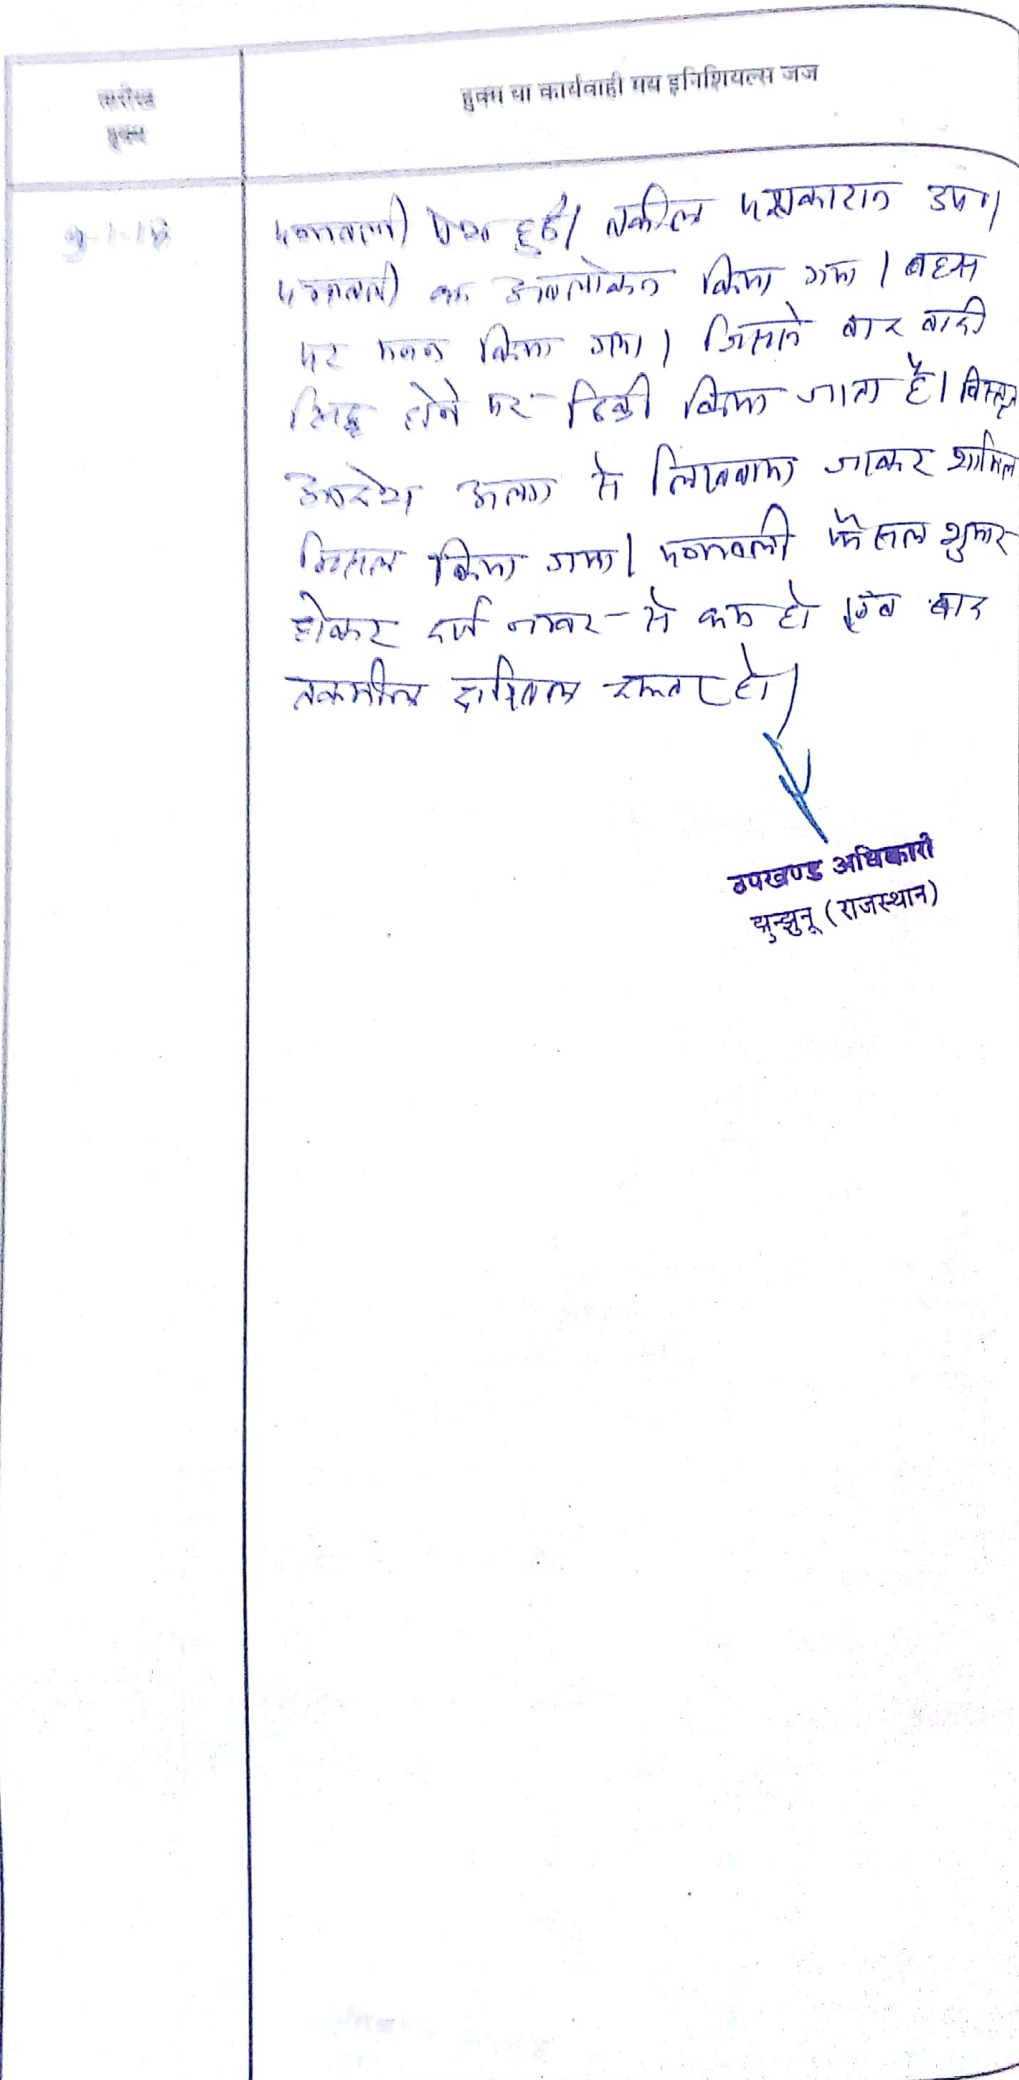 तारीख
हुक्म
हुक्म या कार्यवाही मय इनिशियल्स जज
पत्रावली पेश हुई। वकील पक्षकारान उप०।
पत्रावली का अवलोकन किया गया। बहस
पर मनन किया गया। जिससे वाद वादी
सिद्ध होने पर डिक्री किया जाता है। विस्तृत
आदेश अलग से लिखवाया जाकर शामिल
मिसल किया गया। पत्रावली फैसल शुमार
होकर दर्ज नम्बर से कम हो एवं बाद
तकमील दाखिल दफ्तर हो।
उपखण्ड अधिकारी
झुन्झुनू (राजस्थान)